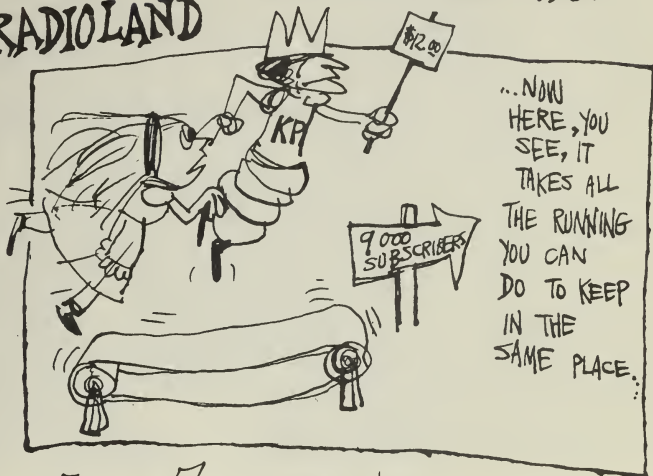 RADIOLAND
$12.00
KP
9000
SUBSCRIBERS
...NOW
HERE, YOU
SEE, IT
TAKES ALL
THE RUNNING
YOU CAN
DO TO KEEP
IN THE
SAME PLACE...